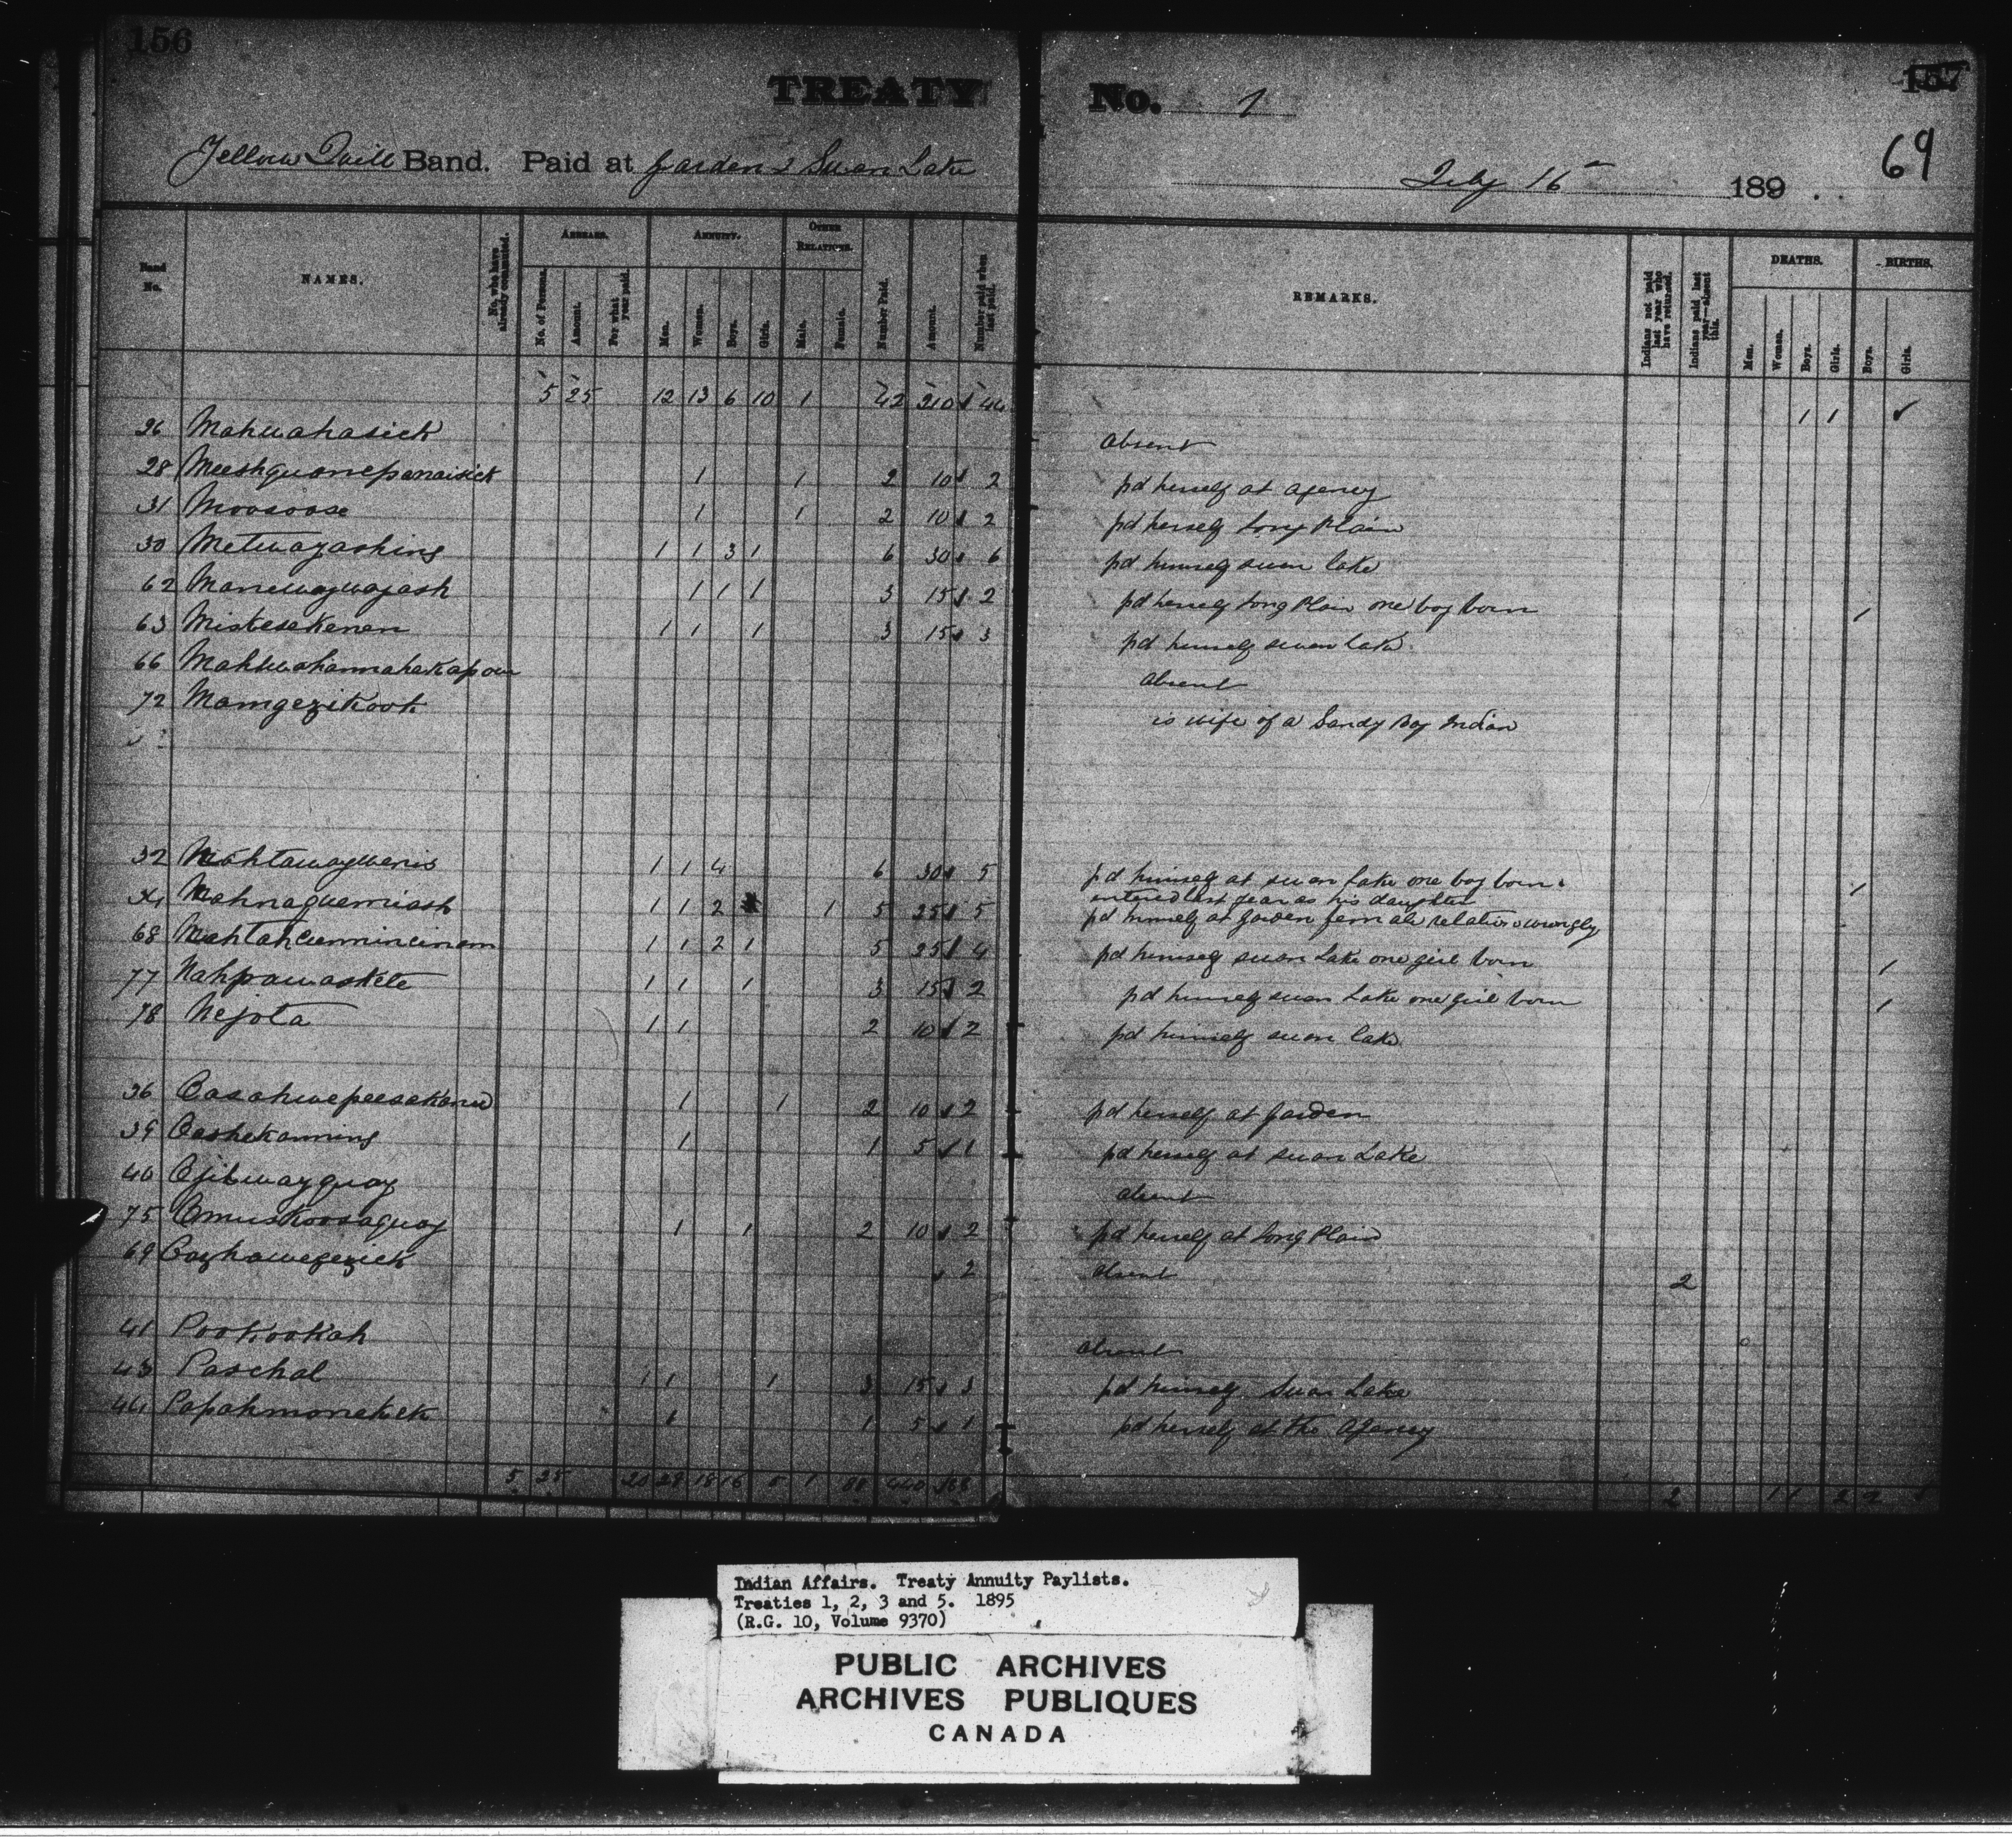 156
TREATY No. 1
157
69
Yellow Quill Band. Paid at Garden & Swan Lake July 16th 189
Band No. NAMES. No. who have already commuted. ARREARS. No. of Persons. Amount. For what year paid. ANNUITY. Men. Women. Boys. Girls. OTHER RELATIONS. Male. Female. Number Paid. Amount. Number paid when last paid. REMARKS. Indians not paid last year who have returned. Indians paid last year—absent this. DEATHS. Men. Women. Boys. Girls. BIRTHS. Boys. Girls.
5 25 12 13 6 10 1 42 210 44 1 1
26 Mahwahasick absent
28 Meeshquonepanaisick 1 1 2 10 2 pd herself at agency
31 Moosoose 1 1 2 10 2 pd herself Long Plain
30 Metwayashing 1 1 3 1 6 30 6 pd himself swan lake
62 Manewaywayash 1 1 1 3 15 2 pd herself Long Plain one boy born 1
63 Mistesekenen 1 1 1 3 15 3 pd himself swan lake
66 Mahwahannahekapow absent
72 Mamgezikook is wife of a Sandy Bay Indian
32 Nahtawaywenis 1 1 4 6 30 5 pd himself at swan lake one boy born 1
entered last year as his daughter
34 Nahnaguemiash 1 1 2 1 5 25 5 pd himself at Garden female relation wrongly
68 Nahtahcumminwinam 1 1 2 1 5 25 4 pd himself swan Lake one girl born 1
77 Nahpawaskete 1 1 1 3 15 2 pd himself swan Lake one girl born 1
78 Nejota 1 1 2 10 2 pd himself swan lake
36 Oasahwepeesekanw 1 1 2 10 2 pd herself at Garden
39 Oashekanning 1 1 5 1 pd herself at swan Lake
40 Ojibwayquay absent
75 Omuskoosaquay 1 1 2 10 2 pd herself at Long Plain
69 Oazhawegezick 2 absent 2
41 Pookookah absent
43 Paschal 1 1 1 3 15 3 pd himself Swan Lake
44 Papahmonekek 1 1 5 1 pd herself at the Agency
5 25 20 28 18 16 5 1 88 440 88 2 1 1 2 2
Indian Affairs. Treaty Annuity Paylists.
Treaties 1, 2, 3 and 5. 1895
(R.G. 10, Volume 9370)
PUBLIC ARCHIVES
ARCHIVES PUBLIQUES
CANADA